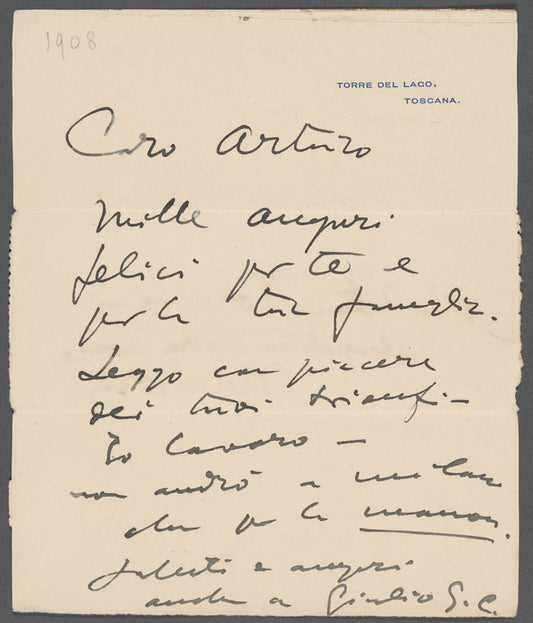 1908
TORRE DEL LAGO,
TOSCANA.
Caro Arturo
Mille auguri
felici per te e
per la tua famiglia.
Leggo con piacere
dei tuoi trionfi –
Io lavoro –
non andrò a Milano
che per la Manon.
Saluti e auguri
anche a Giulio G. C.